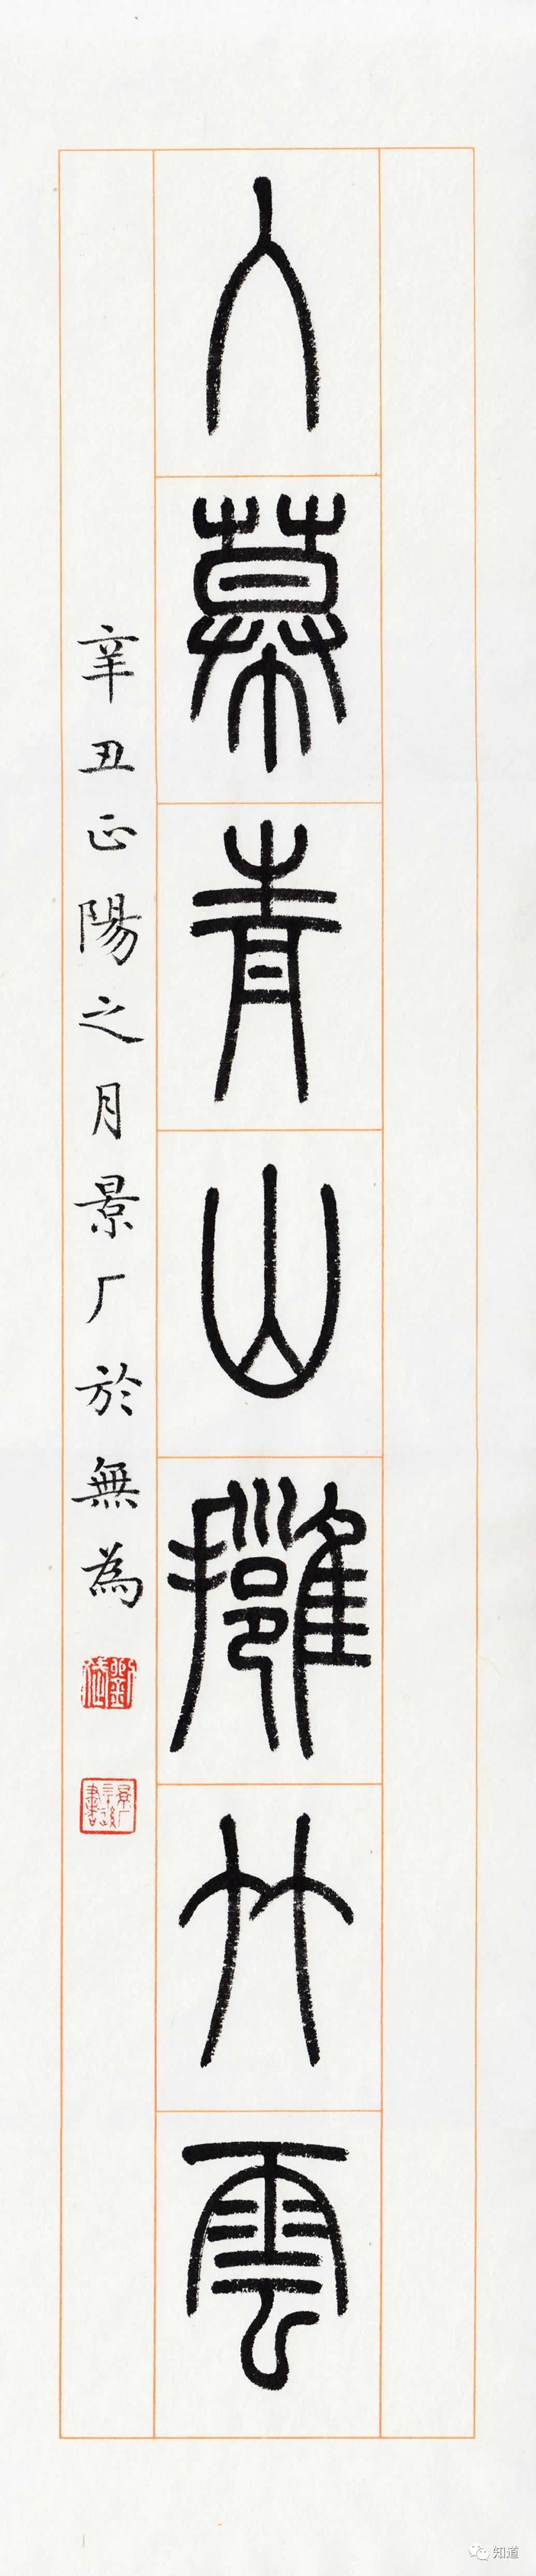 入幕青山擁竹雲
辛丑正陽之月景厂於無為
知道